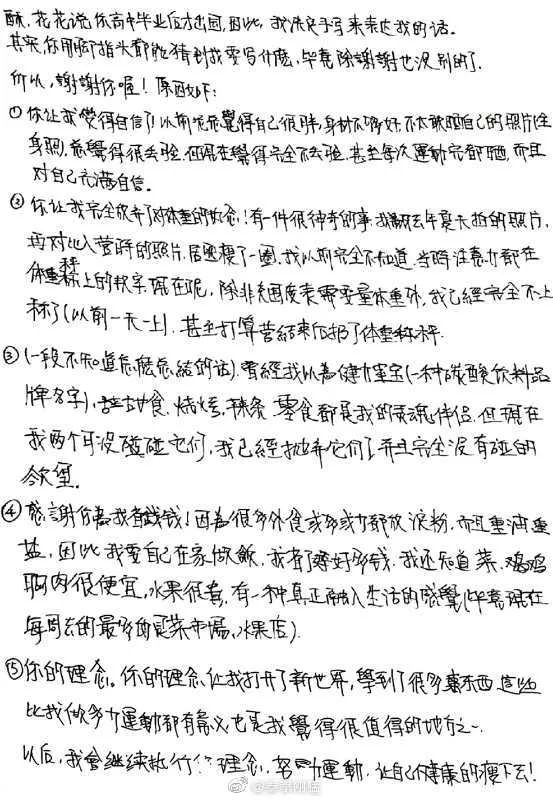 酥，花花说你高中毕业后才出国，因此，我决定手写来表达我的话。
其实，你用脚指头都能猜到我要写什麼，毕竟除謝謝也没别的了.
所以，謝謝你喔！原因如下:
① 你让我覺得自信了！以前总覺得自己很胖，身材不够好，不太敢晒自己的照片(全
身照)，总覺得很丢脸，但現在覺得完全不丢脸，甚至每次運動完都晒，而且
对自己充滿自信。
② 你让我完全放弃了对体重的执念！有一件很神奇的事，我翻去年夏天拍的照片，
再对比入营時的照片，居然瘦了一圈，我以前完全不知道，当時注意力都在
体重秤上的数字，現在呢，除非美国度表需要量体重外，我已經完全不上
秤了(以前一天一上)，甚至打算营结束后扔了体重秤.
③ (一段不知道怎麼总结的话)曾經我以為健力宝(一种碳酸饮料品
牌名字)，垃圾食，烧烤，辣条 零食都是我的灵魂伴侣，但現在
我两个月没碰它们，我已經抛弃它们了，并且完全没有碰的
欲望.
④ 感謝你為我省錢钱！因為很多外食或多或少都放淀粉，而且重油重
盐，因此我要自己在家做飯，我省了好多钱，我还知道菜、鸡鸡
胸肉很便宜，水果很貴，有一种真正融入生活的感覺(毕竟現在
每周去的最多的是菜市場，水果店).
⑤ 你的理念。你的理念，让我打开了新世界，學到了很多東西 這些
比我做多少運動都有意义也是我覺得很值得的地方之一.
以后，我會继续执行 理念，努力運動，让自己健康的瘦下去！